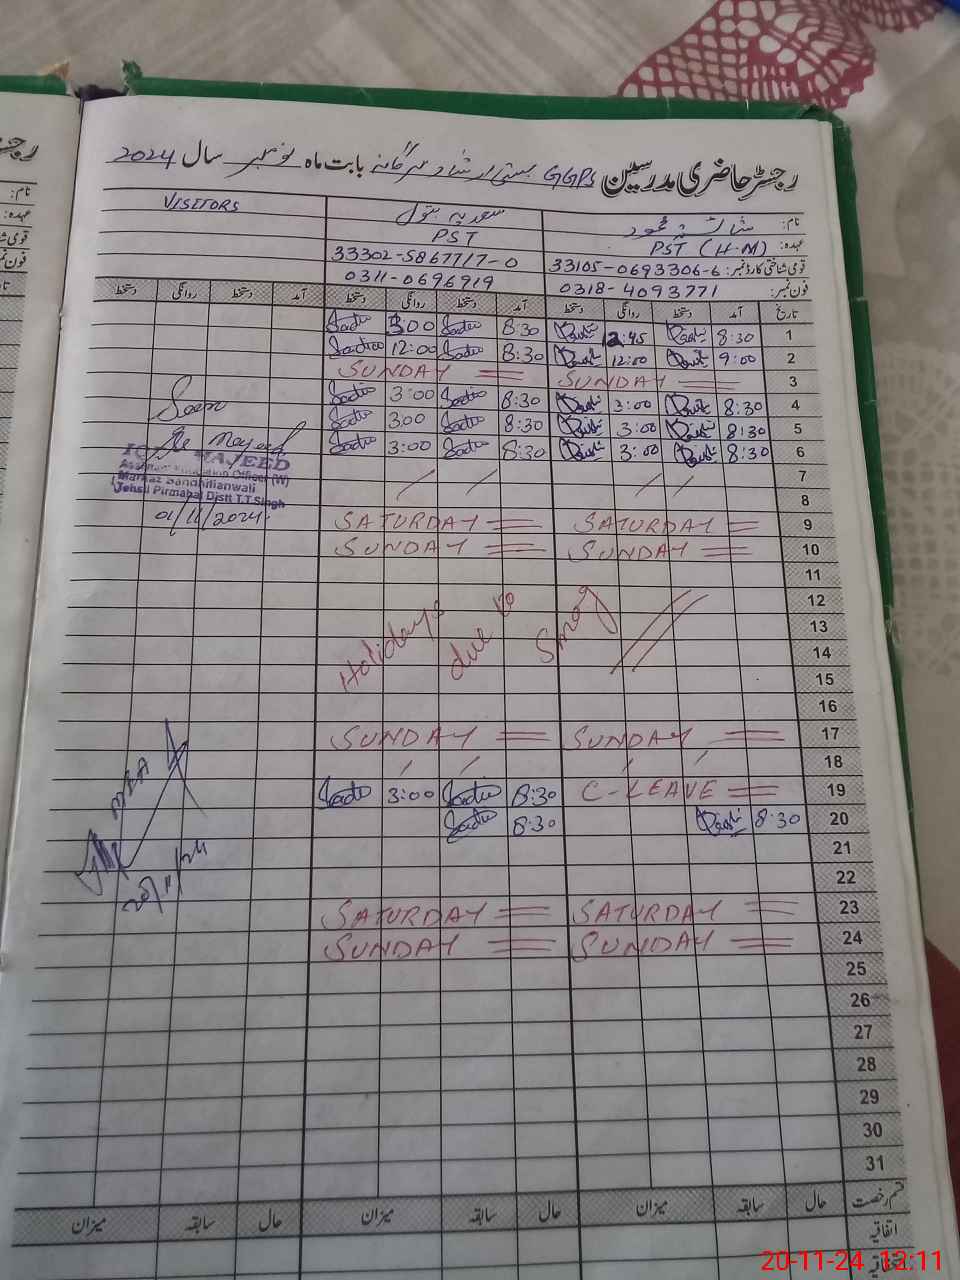 رجسٹر حاضری مدرسین GGPS بستی ارشاد سرگانہ بابت ماہ نومبر سال 2024
نام: شائستہ محمود سعدیہ بتول VISITORS
عہدہ: PST (H.M) PST
قومی شناختی کارڈ نمبر: 33105-0693306-6 33302-5867717-0
فون نمبر: 0318-4093771 0311-0696919
تاریخ آمد دستخط روانگی دستخط آمد دستخط روانگی دستخط آمد دستخط روانگی دستخط
1 8:30 12:45 8:30 3:00
2 9:00 12:00 8:30 12:00
3 SUNDAY SUNDAY
4 8:30 3:00 8:30 3:00
5 8:30 3:00 8:30 3:00
6 8:30 3:00 8:30 3:00
7
8
9 SATURDAY SATURDAY
10 SUNDAY SUNDAY
11
12
13
14
15
Holidays due to Smog
16
17 SUNDAY SUNDAY
18
19 C-LEAVE 8:30 3:00
20 8:30 8:30
21
22
23 SATURDAY SATURDAY
24 SUNDAY SUNDAY
25
26
27
28
29
30
31
Seen
MAJEED
Assistant Education Officer (W)
Markaz Sandhilianwali
Tehsil Pirmahal Distt T.T Singh
01/11/2024
MEA
20/11/24
قسم رخصت حال سابقہ میزان حال سابقہ میزان حال سابقہ میزان
اتفاقیہ
20-11-24 12:11